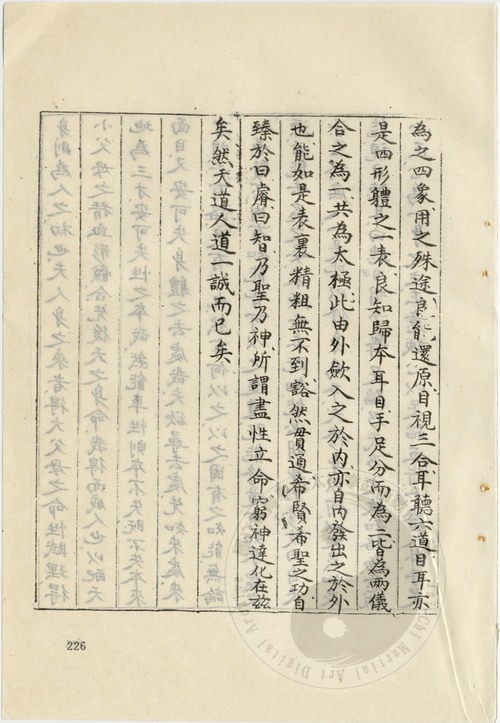 為之四象用之殊途良能還原目視三合耳聽六道目耳亦
是四形體之一表良知歸本耳目手足分而為二皆為兩儀
合之為一共為太極此由外歛入之於內亦自內發出之於外
也能如是表裏精粗無不到豁然貫通希賢希聖之功自
臻於曰睿曰智乃聖乃神所謂盡性立命窮神達化在茲
矣然天道人道一誠而已矣
226